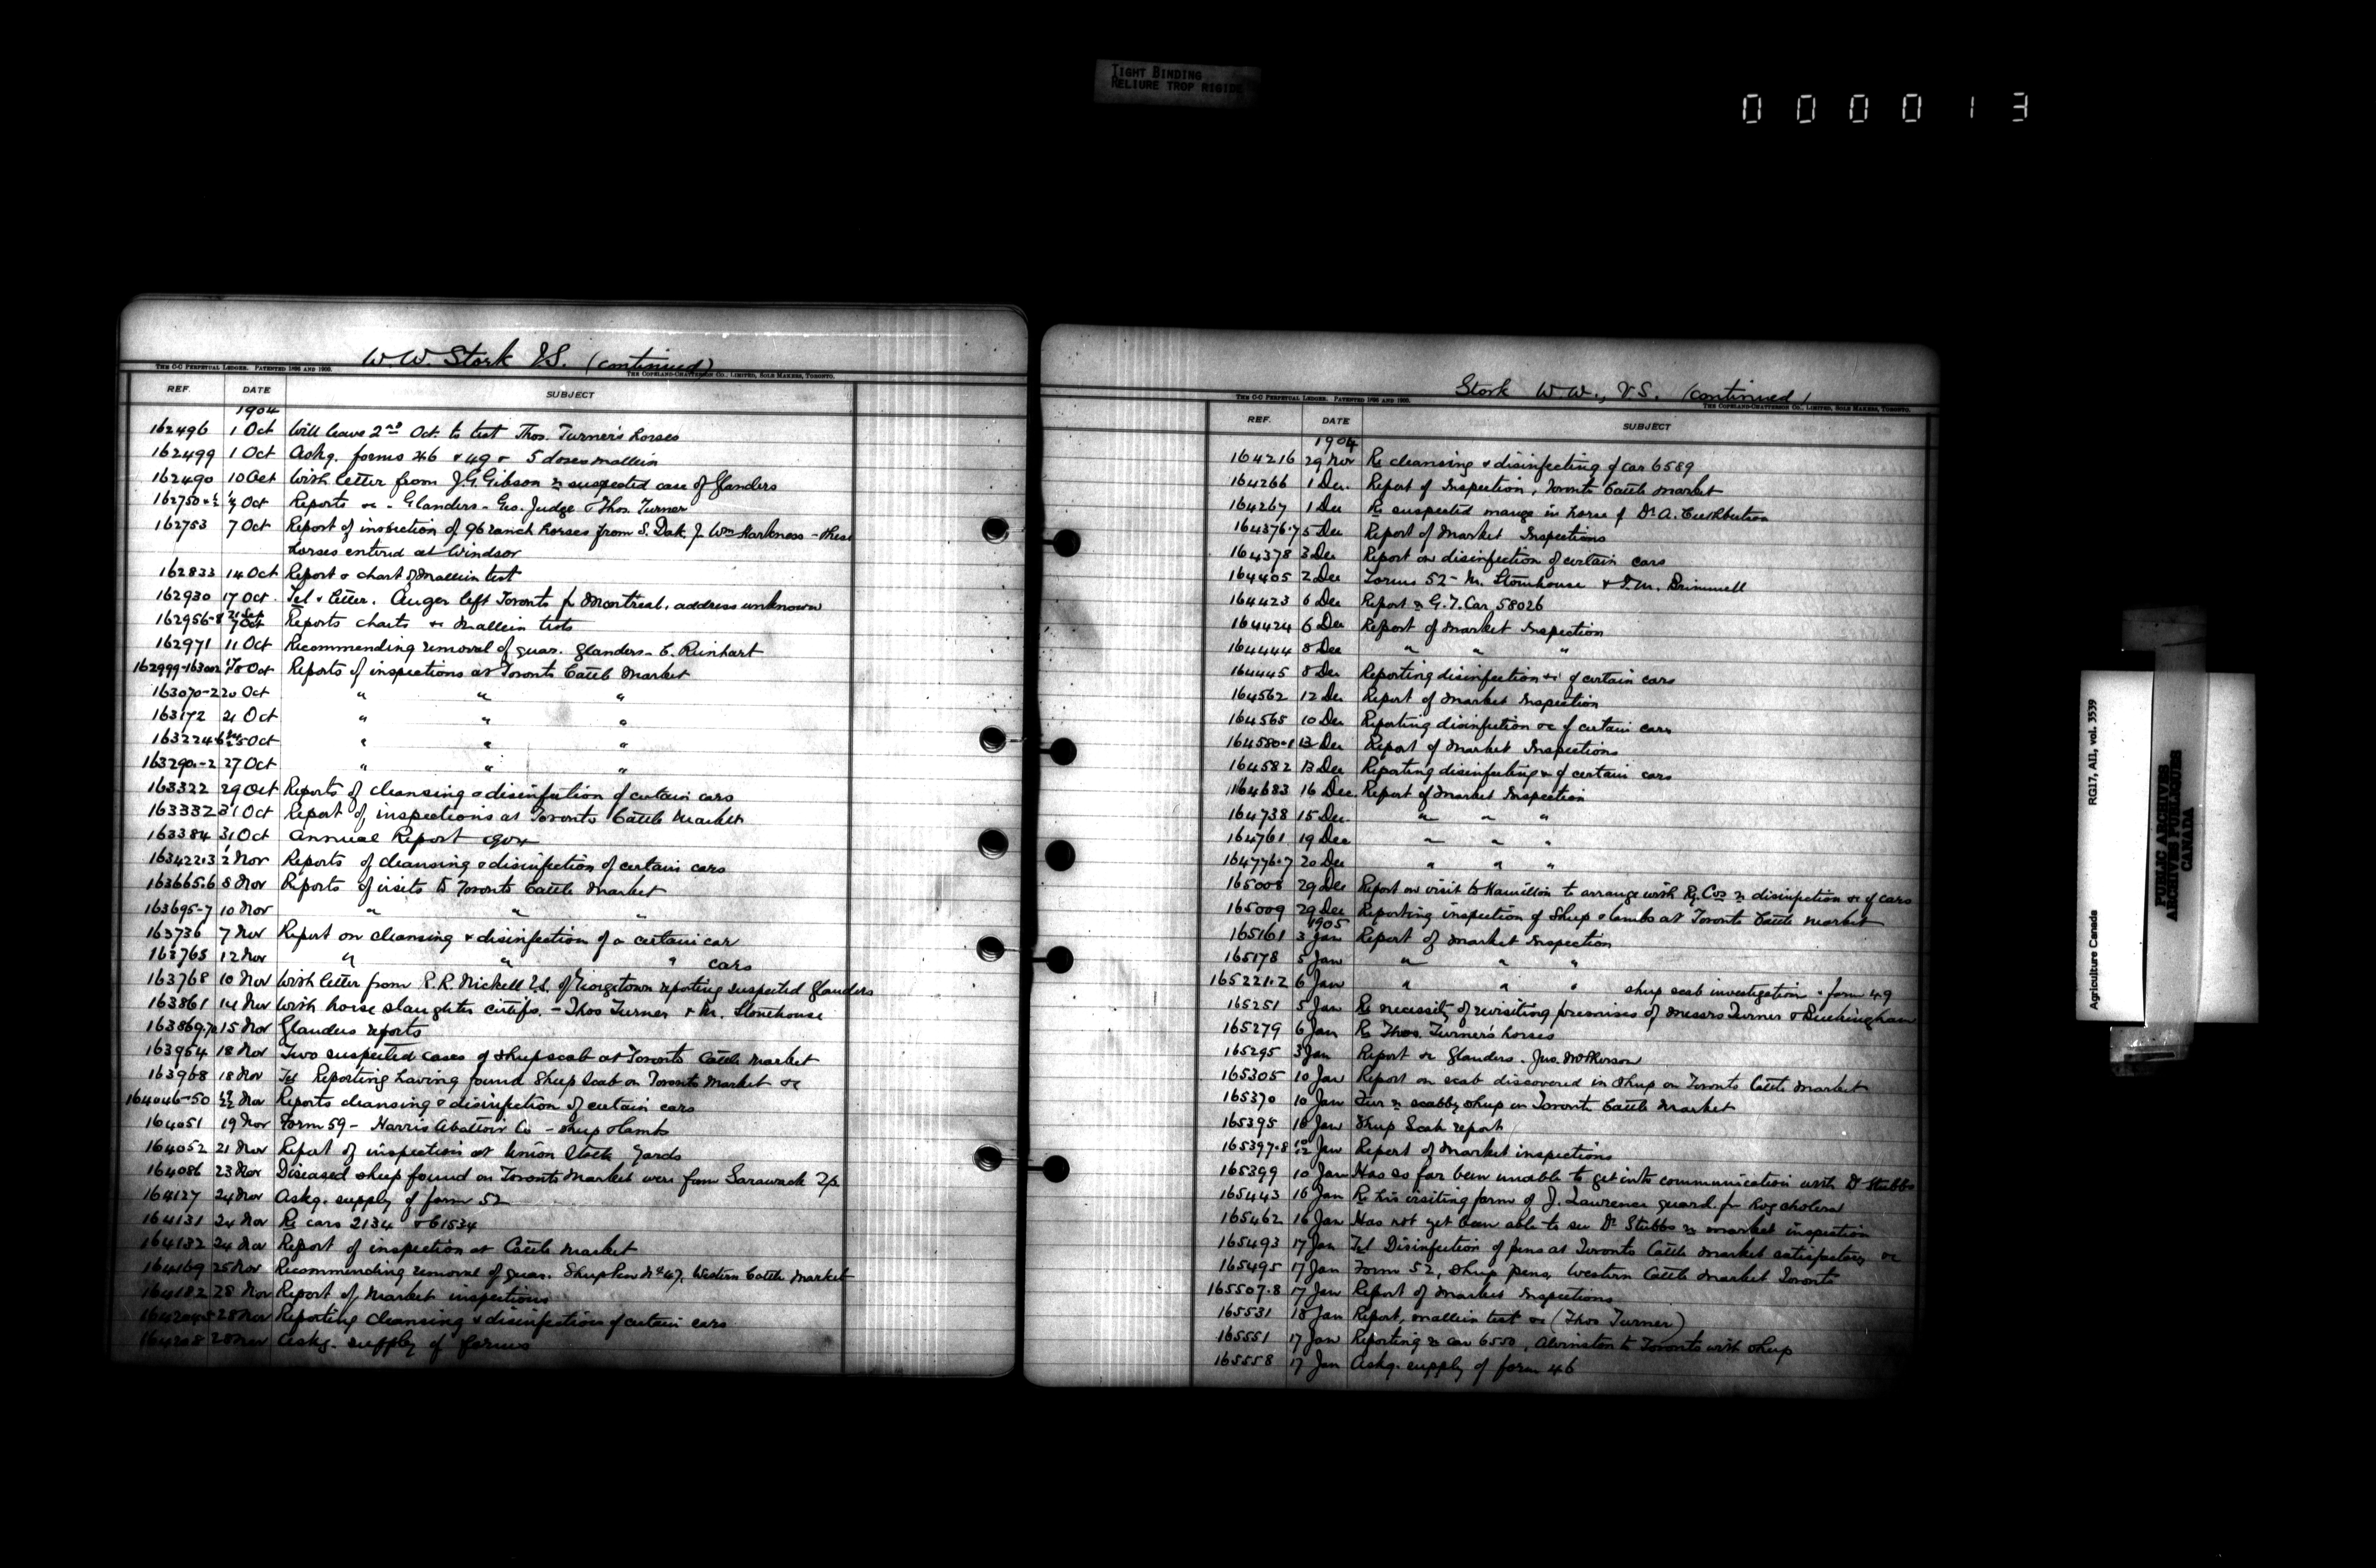 TIGHT BINDING
RELIURE TROP RIGIDE
000013
W. W. Stork V.S. (continued)
THE C-C PERPETUAL LEDGER. PATENTED 1896 AND 1900.
THE COPELAND-CHATTERSON CO., LIMITED, SOLE MAKERS, TORONTO.
REF. DATE SUBJECT
1904
162496 1 Oct Will leave 2nd Oct. to test Thos. Turner's horses
162499 1 Oct Askg. forms 46 & 49 & 5 doses mallein
162490 10 Oct With letter from J.G. Gibson re suspected case of Glanders
Oct Reports &c - Glanders - Geo. Judge & Thos. Turner
162753 7 Oct Report of inspection of 96 ranch horses from S. Dak. f. Wm Harkness - these
horses entered at Windsor
162833 14 Oct Report & chart of Mallein test
162930 17 Oct. Tel & letter. Auger left Toronto for Montreal, address unknown
162956-8 Reports charts &c Mallein tests
162971 11 Oct Recommending removal of quar. Glanders - E. Rinhart
162999-163002 Oct Reports of inspections at Toronto Cattle Market
163070-2 20 Oct " " "
163172 21 Oct " " "
Oct " " "
163290-2 27 Oct " " "
163322 29 Oct Reports of cleansing & disinfection of certain cars
163332 31 Oct Report of inspections at Toronto Cattle Market
163384 31 Oct Annual Report 1904
163422.3 2 Nov Reports of cleansing & disinfection of certain cars
163665.6 8 Nov Reports of visits to Toronto Cattle Market
163695-7 10 Nov " " "
163736 7 Nov Report on cleansing & disinfection of a certain car
163765 12 Nov " " " cars
163768 10 Nov With letter from R.R. Nickell V.S. of Georgetown reporting suspected Glanders
163861 14 Nov With horse slaughter certifs. - Thos Turner & M. Stonehouse
163869.70 15 Nov Glanders reports
163954 18 Nov Two suspected cases of sheep scab at Toronto Cattle Market
163968 18 Nov Tel Reporting having found Sheep Scab on Toronto Market &c
164046-50 Nov Reports cleansing & disinfection of certain cars
164051 19 Nov Form 59 - Harris Abattoir Co - sheep & lambs
164052 21 Nov Report of inspection at Union Stock Yards
164086 23 Nov Diseased sheep found on Toronto Market were from Sarawack Tp.
164127 24 Nov Askg. supply of form 52
164131 24 Nov Re cars 2134 & 61534
164132 24 Nov Report of inspection at Cattle Market
164169 25 Nov Recommending removal of quar. Sheep Pen No 47, Western Cattle Market
164182 28 Nov Report of Market inspections
28 Nov Reporting cleansing & disinfection of certain cars
164208 28 Nov Askg. supply of forms
Stork W. W., V.S. (continued)
THE C-C PERPETUAL LEDGER. PATENTED 1896 AND 1900.
THE COPELAND-CHATTERSON CO., LIMITED, SOLE MAKERS, TORONTO.
REF. DATE SUBJECT
1904
164216 29 Nov Re cleansing & disinfecting of car 6589
164266 1 Dec. Report of Inspection, Toronto Cattle Market
164267 1 Dec Re suspected mange in horse of Dr. A. Cuthbertson
164376.7 5 Dec Report of Market Inspections
164378 3 Dec Report on disinfection of certain cars
164405 2 Dec Forms 52 - M. Stonehouse & T.M. Brimmell
164423 6 Dec Report re G.T. Car 58026
164424 6 Dec Report of Market Inspection
164444 8 Dec " " "
164445 8 Dec Reporting disinfection &c of certain cars
164562 12 Dec Report of Market Inspection
164565 10 Dec Reporting disinfection &c of certain cars
164580.1 13 Dec Report of Market Inspections
164582 13 Dec Reporting disinfecting &c of certain cars
164683 16 Dec. Report of Market Inspection
164738 15 Dec. " " "
164761 19 Dec " " "
164776.7 20 Dec " " "
165008 29 Dec Report on visit to Hamilton to arrange with Ry. Cos re disinfection &c of cars
165009 29 Dec Reporting inspection of sheep & lambs at Toronto Cattle Market
1905
165161 3 Jan Report of Market Inspection
165178 5 Jan " " "
165221.2 6 Jan " " " sheep scab investigation & form 49
165251 5 Jan Re necessity of revisiting premises of Messrs Turner & Buckingham
165279 6 Jan Re Thos. Turner's horses
165295 3 Jan Report &c Glanders. Jno. McPherson
165305 10 Jan Report on scab discovered in sheep on Toronto Cattle Market
165370 10 Jan Fur re scabby sheep on Toronto Cattle Market
165395 10 Jan Sheep Scab report
165397.8 Jan Report of Market inspections
165399 10 Jan Has so far been unable to get into communication with Dr Stubbs
165443 16 Jan Re his visiting farm of J. Lawrence quard. for hog cholera
165462 16 Jan Has not yet been able to see Dr Stubbs re market inspection
165493 17 Jan Tel Disinfection of pens at Toronto Cattle Market satisfactory &c
165495 17 Jan Form 52, sheep pens, Western Cattle Market Toronto
165507.8 17 Jan Report of Market Inspections
165531 18 Jan Report, mallein test &c (Thos Turner)
165551 17 Jan Reporting re car 6550, Alvinston to Toronto with sheep
165558 17 Jan Askg. supply of form 46
Agriculture Canada RG17, AII, vol. 3539
PUBLIC ARCHIVES
ARCHIVES PUBLIQUES
CANADA